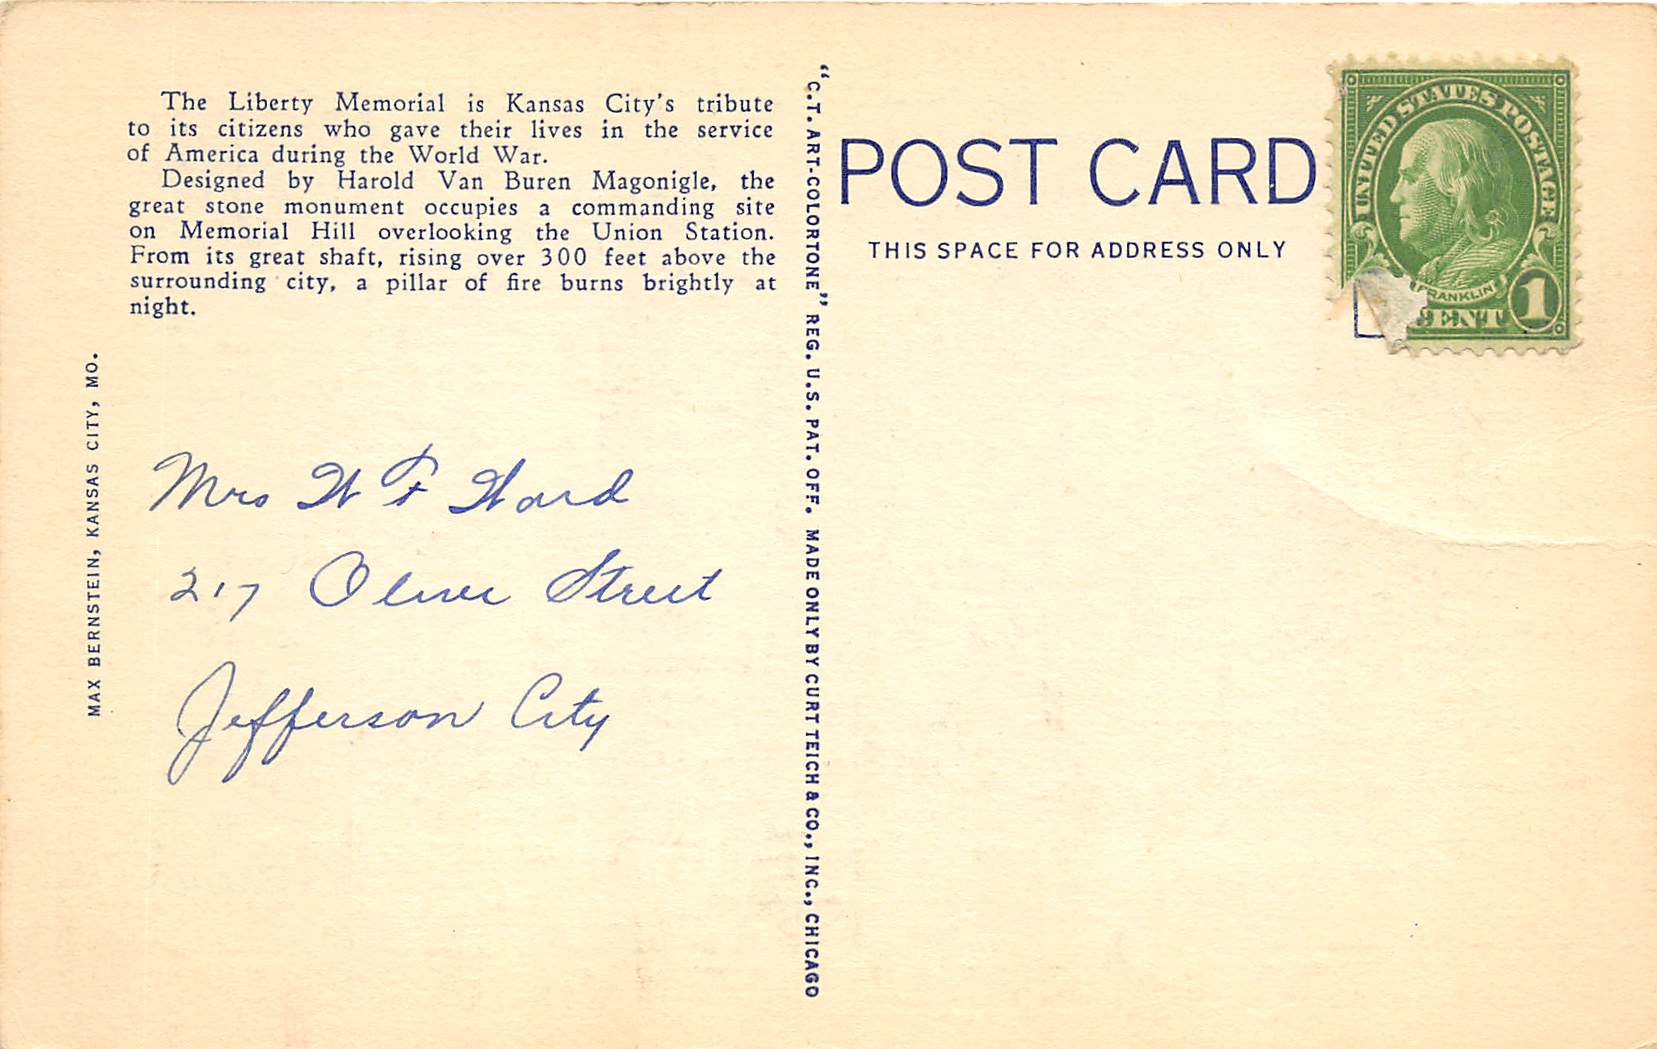 The Liberty Memorial is Kansas City's tribute
to its citizens who gave their lives in the service
of America during the World War.
Designed by Harold Van Buren Magonigle, the
great stone monument occupies a commanding site
on Memorial Hill overlooking the Union Station.
From its great shaft, rising over 300 feet above the
surrounding city, a pillar of fire burns brightly at
night.
MAX BERNSTEIN, KANSAS CITY, MO.
Mrs W F Ward
217 Oliver Street
Jefferson City
"C.T. ART-COLORTONE" REG. U.S. PAT. OFF. MADE ONLY BY CURT TEICH & CO., INC., CHICAGO
POST CARD
THIS SPACE FOR ADDRESS ONLY
UNITED STATES POSTAGE
FRANKLIN
CENT 1